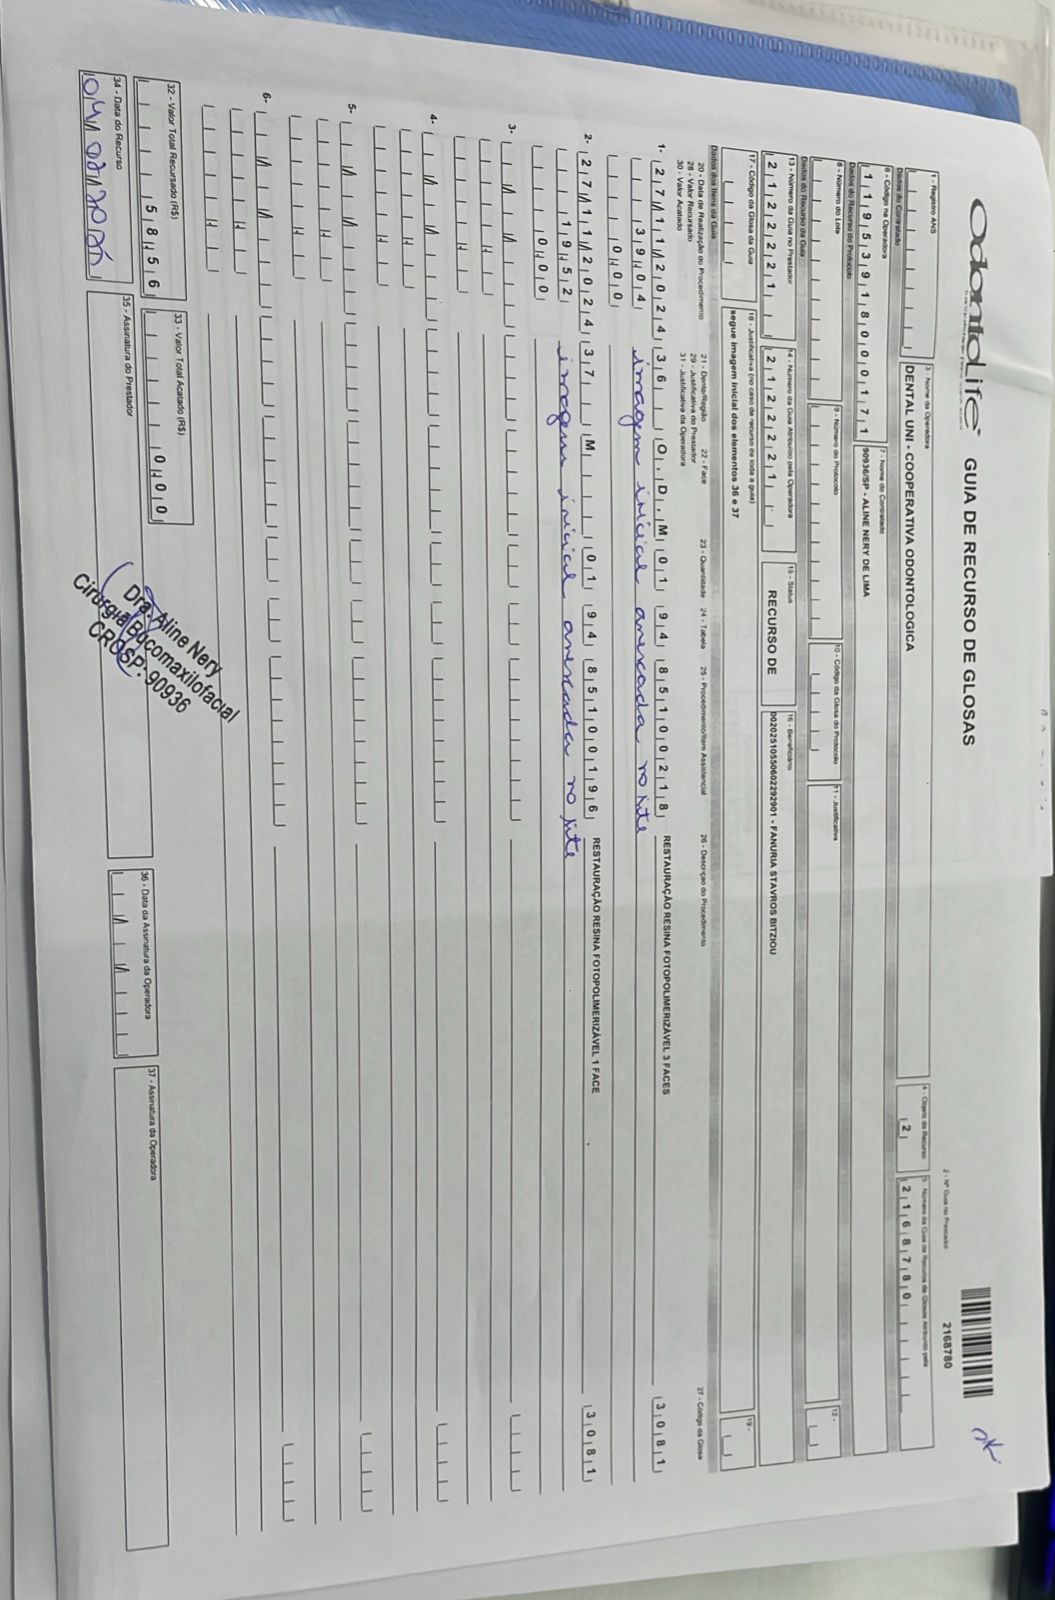 OdontoLife
GUIA DE RECURSO DE GLOSAS
2 - Nº Guia no Prestador
2168780
1 - Registro ANS
3 - Nome da Operadora
DENTAL UNI - COOPERATIVA ODONTOLOGICA
4 - Objeto do Recurso
2
5 - Número da Guia de Recurso de Glosas Atribuído pela
2168780
Dados do Contratado
6 - Código na Operadora
11953918000171
7 - Nome do Contratado
90936/SP - ALINE NERY DE LIMA
Dados do Recurso do Protocolo
8 - Número do Lote
9 - Número do Protocolo
10 - Código da Glosa do Protocolo
11 - Justificativa
12 -
Dados do Recurso da Guia
13 - Número da Guia no Prestador
2122221
14 - Número da Guia Atribuído pela Operadora
2122221
15 - Status
RECURSO DE
16 - Beneficiário
00202510550602292901 - FANURIA STAVROS BITZIOU
17 - Código da Glosa da Guia
18 - Justificativa (no caso de recurso de toda a guia)
segue imagem inicial dos elementos 36 e 37
19 -
Dados dos Itens da Guia
20 - Data de Realização do Procedimento 21 - Dente/Região 22 - Face 23 - Quantidade 24 - Tabela 25 - Procedimento/Item Assistencial 26 - Descrição do Procedimento 27 - Código da Glosa
28 - Valor Recursado 29 - Justificativa do Prestador
30 - Valor Acatado 31 - Justificativa da Operadora
1- 27/11/2024 36 O,D,M 01 94 85100218 RESTAURAÇÃO RESINA FOTOPOLIMERIZÁVEL 3 FACES 3081
39,04 imagem inicial anexada no site
0,00
2- 27/11/2024 37 M 01 94 85100196 RESTAURAÇÃO RESINA FOTOPOLIMERIZÁVEL 1 FACE 3081
19,52 imagem inicial anexada no site
0,00
3-
4-
5-
6-
32 - Valor Total Recursado (R$)
58,56
33 - Valor Total Acatado (R$)
0,00
34 - Data do Recurso
04/02/2025
35 - Assinatura do Prestador
Dra. Aline Nery
Cirurgiã Bucomaxilofacial
CROSP: 90936
36 - Data da Assinatura da Operadora
37 - Assinatura da Operadora